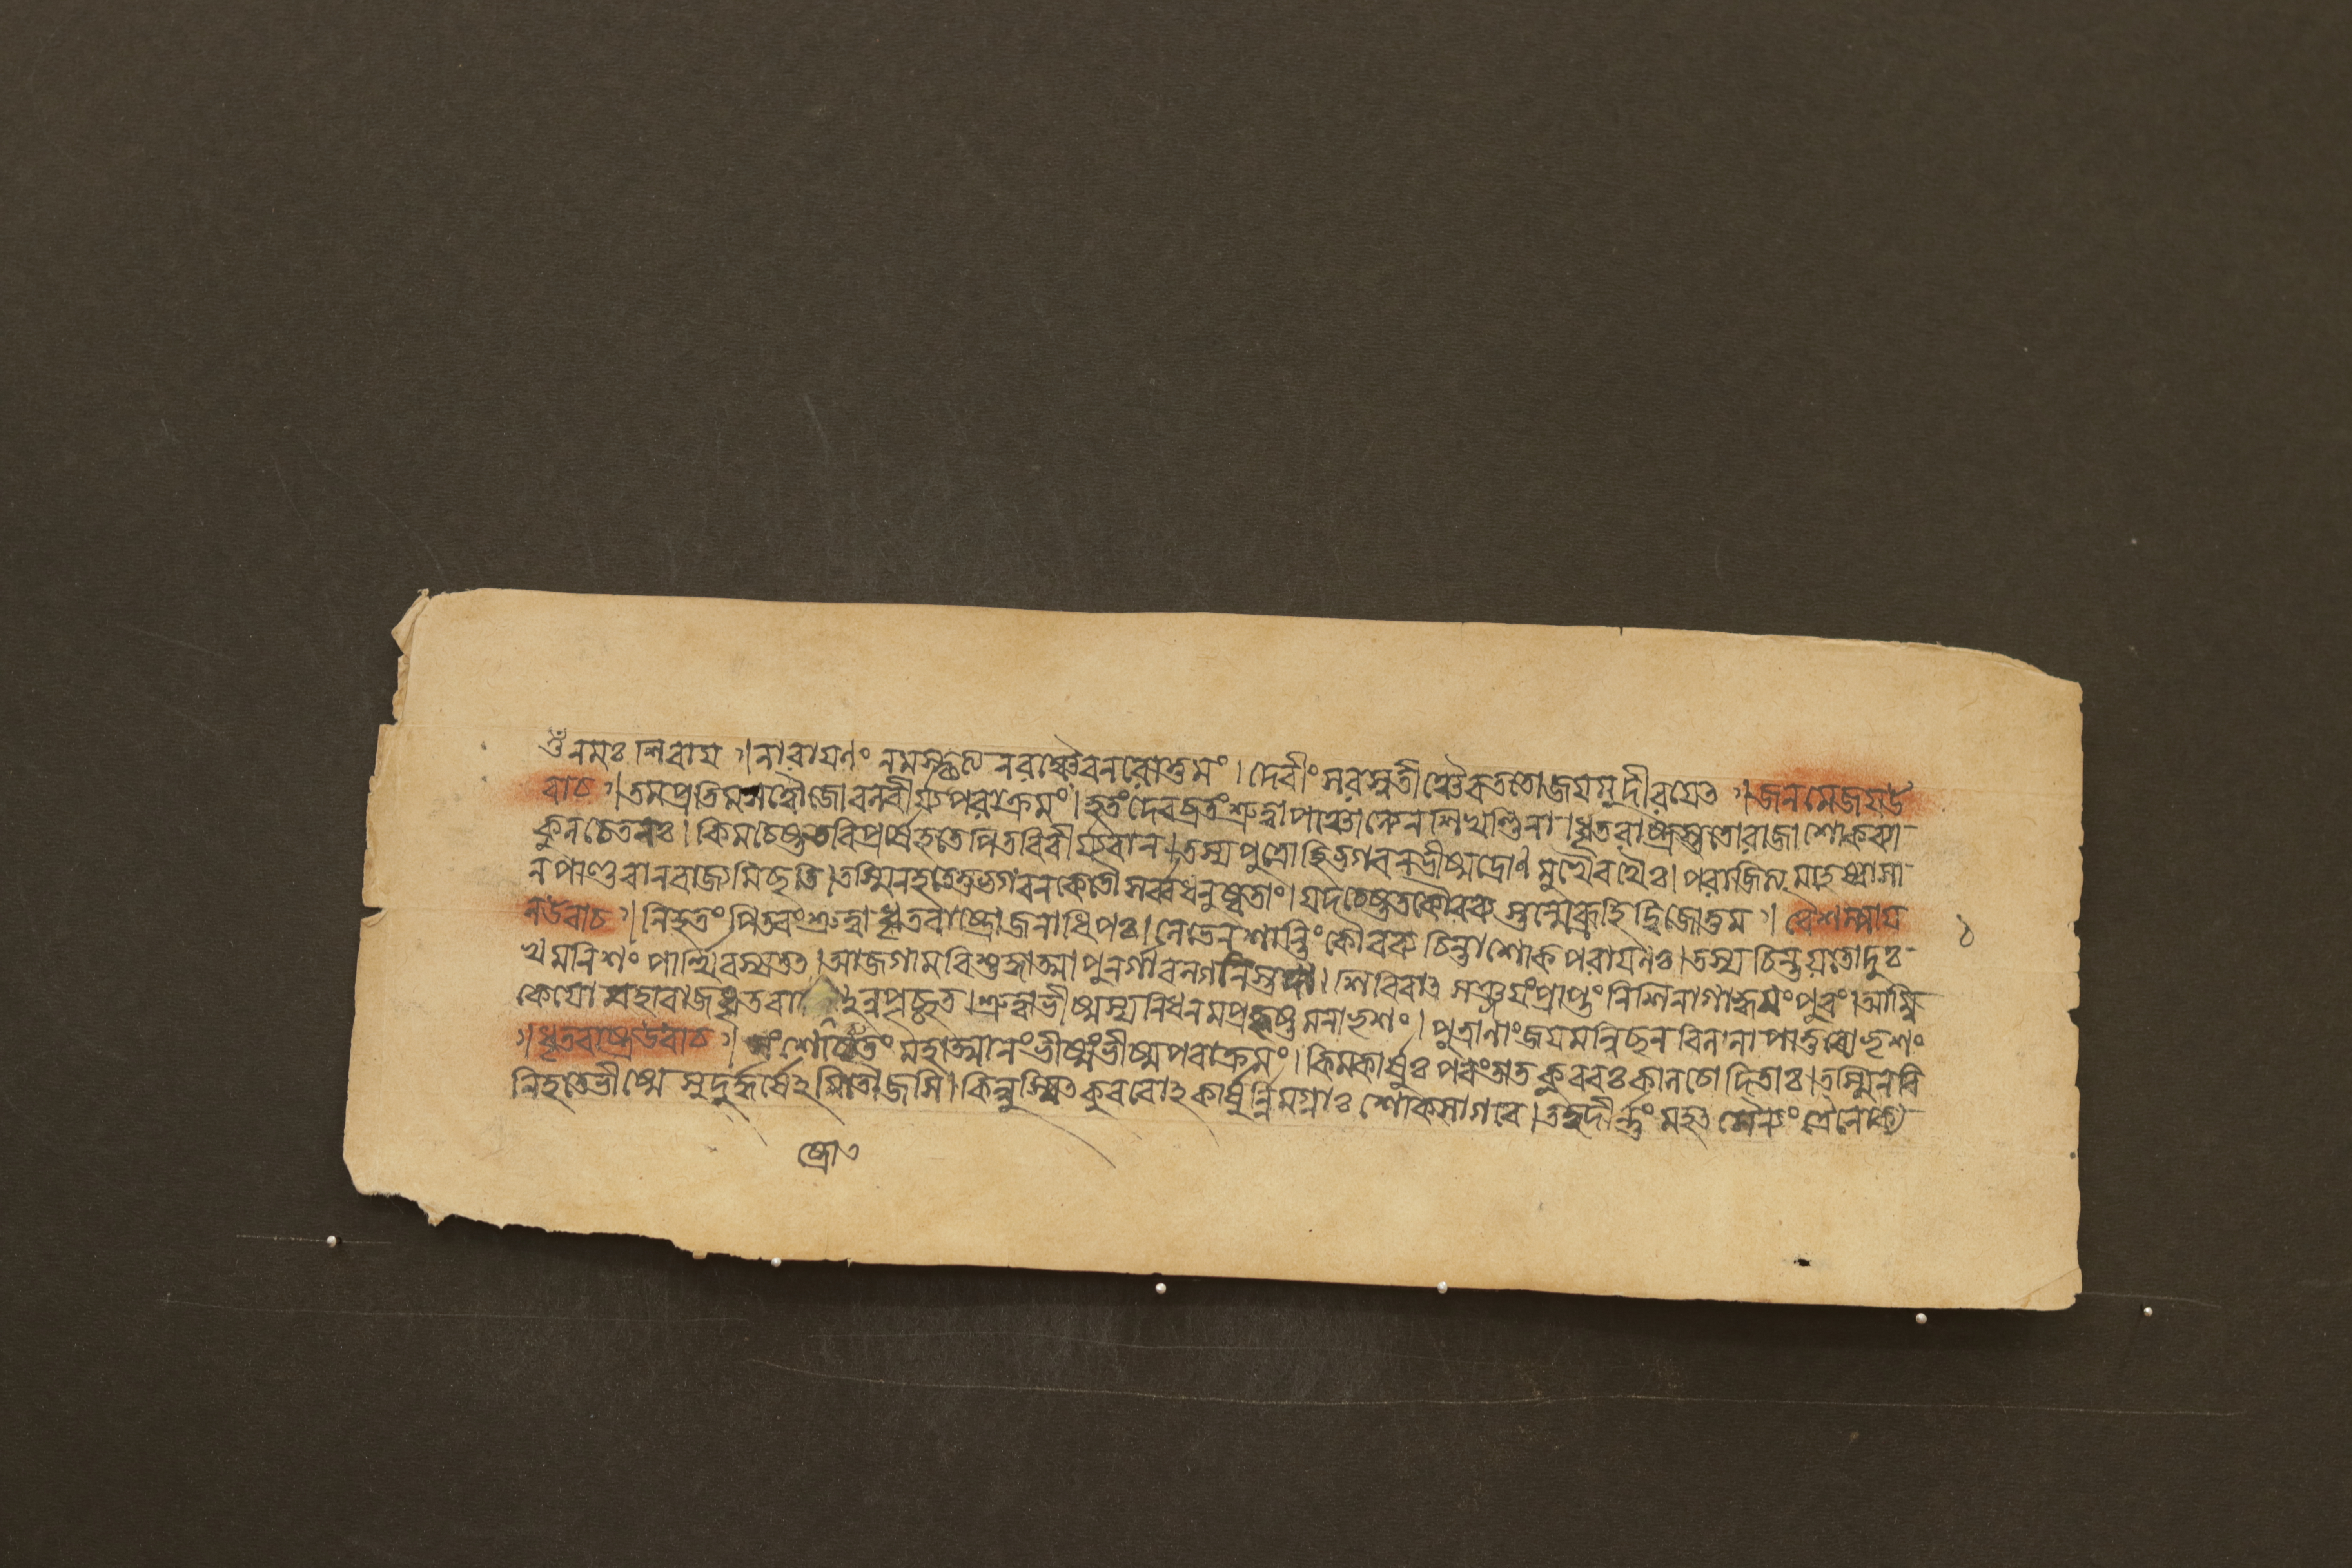 ওঁ নমঃ শিবায় ৷ নারায়ণং নমস্কৃত্য নরঞ্চৈব নরোত্তমং । দেবীং সরস্বতীঞ্চৈব ততো জয়মুদীরয়েত্ ৷ জনমেজয় উ
বাচ ৷ তমপ্রতিমসত্বৌজোবলবীর্য্যপরাক্রমং । হতং দেবব্রতং শ্রুত্বা পাঞ্চাল্যেন শিখণ্ডিনা । ধৃতরাষ্ট্রস্ততো রাজা শোকব্যা
কুলচেতনঃ । কিমচেষ্টত বিপ্রর্ষে হতে পিতরি বীর্য্যবান । তস্য পুত্রো হি ভগবন ভীষ্মদ্রোণমুখৈ রথৈঃ । পরাজিত্য মহেষ্বাসা
ন পাণ্ডবান রাজ্যমিছতি । তস্মিন হতে তু ভগবন কেতৌ সর্ব্বধনুষ্মতাং । যদচেষ্টত কৌরব্য স্তন্মে ব্রূহি দ্বিজোত্তম ৷ বৈশম্পায়
ন উবাচ ৷ নিহতং পিতরং শ্রুত্বা ধৃতরাষ্ট্রো জনাধিপঃ । লেভে ন শান্তিং কৌরব্য চিন্তাশোকপরায়নঃ । তস্য চিন্তয়তো দুঃ ১
খমনিশং পার্থিবস্য তত্ । আজগাম বিশুদ্ধাত্মা পুনর্গাবল্গনিস্তদা । শিবিরাত্ সঞ্জয়ং প্রাপ্তং নিশি নাগাহ্বয়ং পুরং । আম্বি
কেয়ো মহারাজ ধৃতরা নুপৃচ্ছত । শ্রুত্বা ভীষ্মস্য নিধনমপ্রহৃষ্টমনা ভৃশং । পুত্রানাং জয়মন্বিছন বিললাপাতুরো ভৃশং
৷ ধৃতরাষ্ট্র উবাচ ৷ সংশোচ্য তং মহাত্মানং ভীষ্মং ভীমপরাক্রমং । কিমকার্ষুঃ পরং তাত কুরবঃ কালচোদিতাঃ । তস্মিন বি
নিহতে ভীষ্মে সুদুর্দ্ধর্ষে ঽমিতৌজসি । কিন্নুস্বিত্ কুরবো ঽকার্ষুর্ন্নিমগ্নাঃ শোকসাগরে । তদুদীর্ন্নং মহত্ সৈন্যং ত্রৈলোক্য
ষ্ট্রো